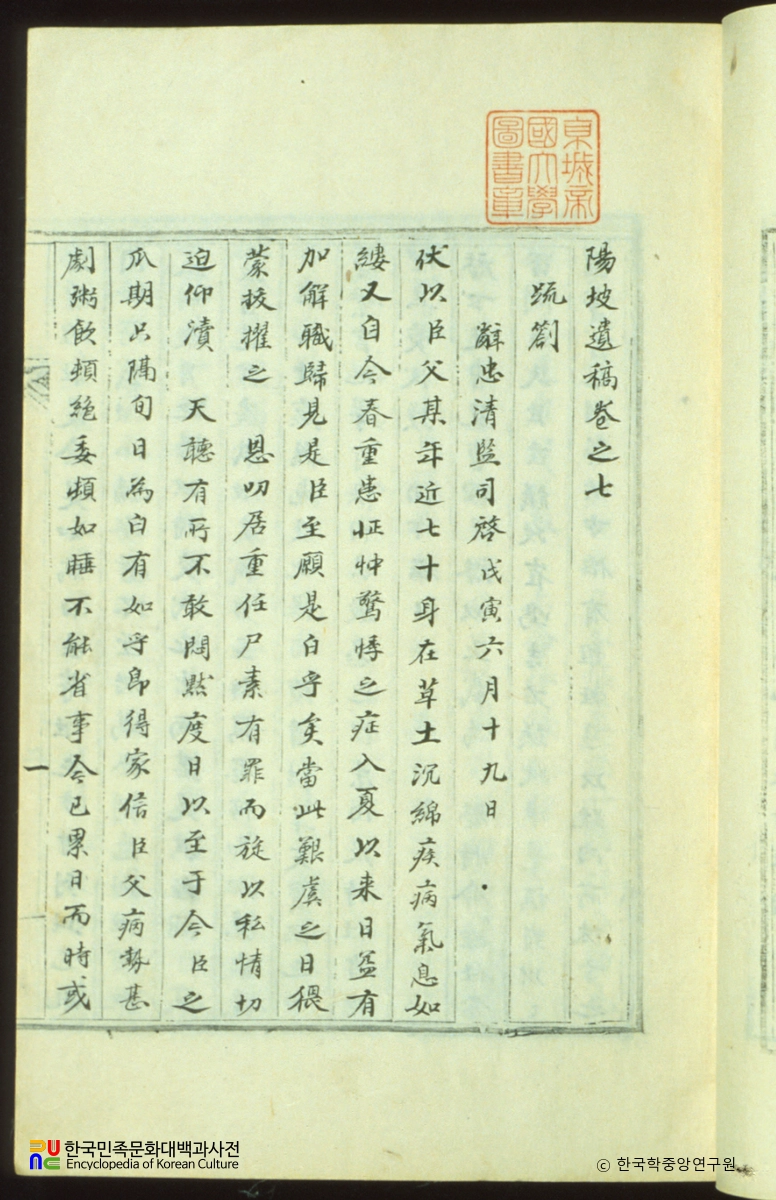 京城帝
國大學
圖書章
陽坡遺稿卷之七
疏劄
辭忠清監司啓戊寅六月十九日
伏以臣父某年近七十身在草土沉綿疾病氣息如
縷又自今春重患怔忡驚悸之症入夏以来日益有
加解職歸見是臣至願是白乎矣當此艱虞之日猥
蒙授擢之 恩叨居重任尸素有罪而旋以私情切
迫仰瀆 天聽有所不敢悶默度日以至于今臣之
瓜期只隔旬日為白有如乎卽得家信臣父病勢甚
劇粥飮頻絶委頓如睡不能省事今已累日而時或
一
한국민족문화대백과사전
Encyclopedia of Korean Culture
ⓒ 한국학중앙연구원